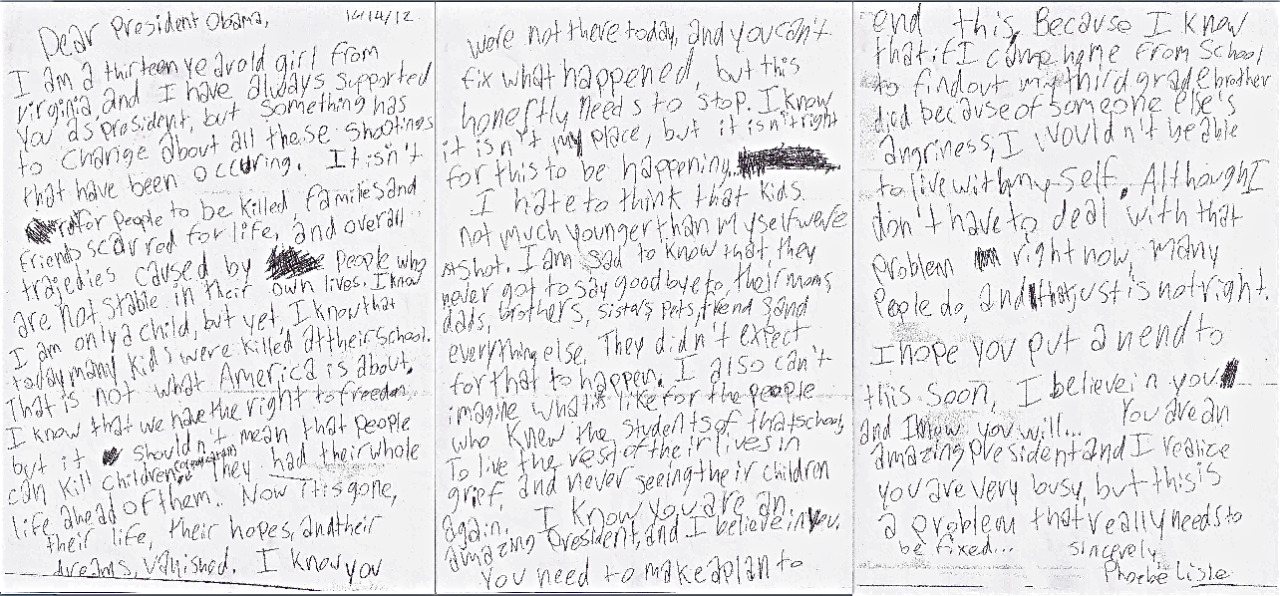 Dear President Obama,
12/14/12
I am a thirteen year old girl from
virginia, and I have always supported
you as president, but something has
to change about all these shootings
that have been occuring. It isn't
for people to be killed, families and
friends scarred for life, and overall
tragedies caused by people who
are not stable in their own lives. I know
I am only a child, but yet, I know that
today many kids were killed at their school.
That is not what America is about.
I know that we have the right to freedom,
but it shouldn't mean that people
can kill children They had their whole
life ahead of them.. Now it is gone,
their life, their hopes, and their
dreams, vanished. I know you
were not there today, and you can't
fix what happened, but this
honestly needs to stop. I know
it isn't my place, but it isn't right
for this to be happening.
I hate to think that kids.
not much younger than myself were
shot. I am sad to know that, they
never got to say goodbye to, their moms
dads, brothers, sisters pets, friends and
everything else. They didn't expect
for that to happen. I also can't
imagine what is like for the people
who knew the students of that school,
To live the rest of their lives in
grief, and never seeing their children
again. I know you are an
amazing President, and I believe in you.
You need to make a plan to
end this. Because I know
that if I came home from School
to find out my third grade brother
died because of someone else's
angriness, I wouldn't be able
to live with my self. Although I
don't have to deal with that
problem right now, many
People do, and that just is not right.
I hope you put an end to
this soon, I believe in you
and I know you will... You are an
amazing President and I realize
you are very busy, but this is
a problem that really needs to
be fixed... sincerely
Phoebe Lisle